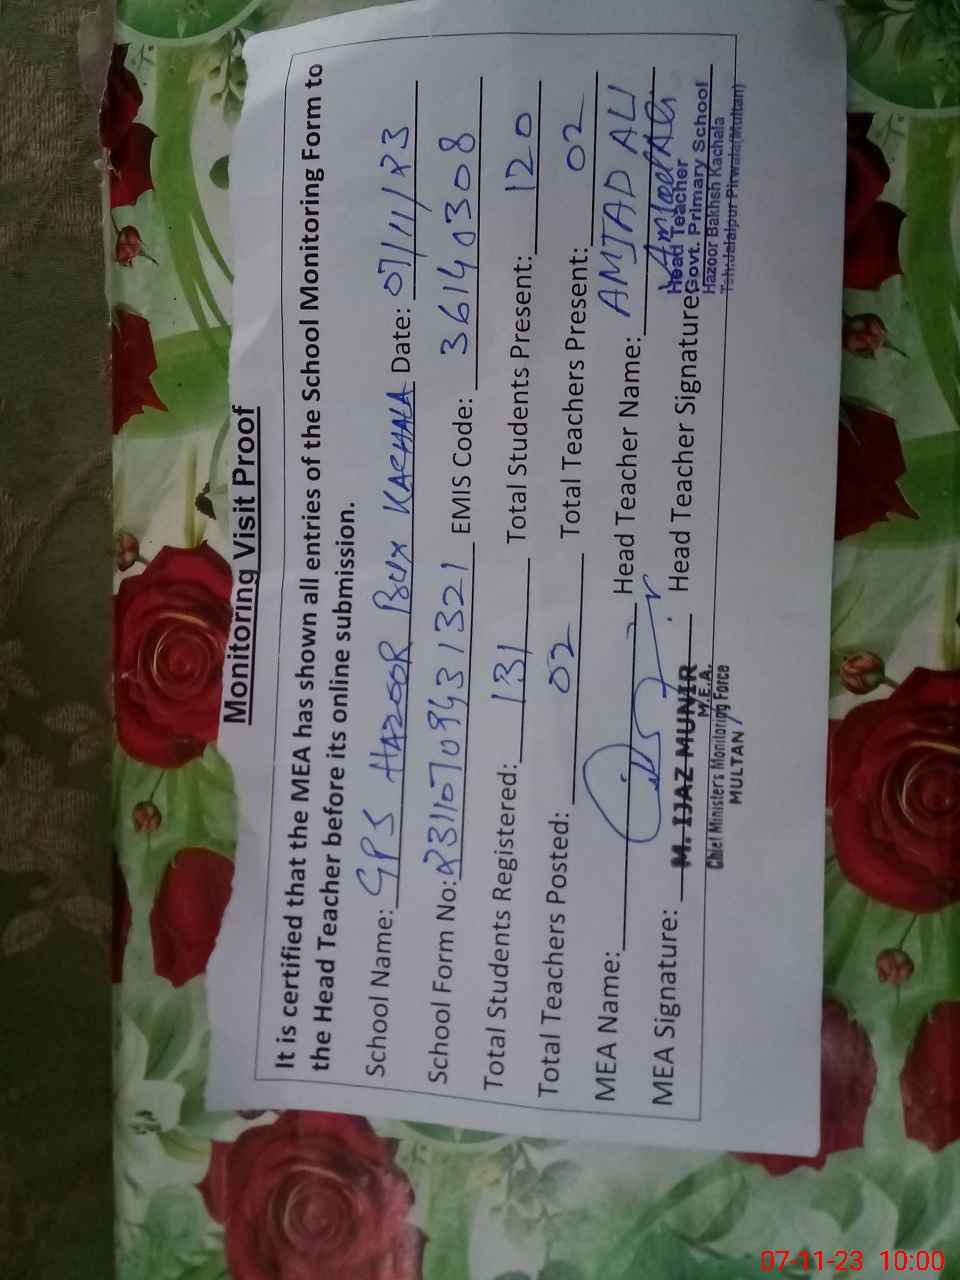 Monitoring Visit Proof
It is certified that the MEA has shown all entries of the School Monitoring Form to
the Head Teacher before its online submission.
School Name: GPS HAZOOR BUX KACHALA Date: 07/11/23
School Form No: 23110709431321 EMIS Code: 36140308
Total Students Registered: 131 Total Students Present: 120
Total Teachers Posted: 02 Total Teachers Present: 02
MEA Name: Head Teacher Name: AMJAD ALI
MEA Signature: M. IJAZ MUNIR Head Teacher Signature:
M.E.A.
Chief Minister's Monitoring Force
MULTAN
Head Teacher
Govt. Primary School
Hazoor Bakhsh Kachala
Teh: Jalalpur Pirwala (Multan)
07-11-23 10:00